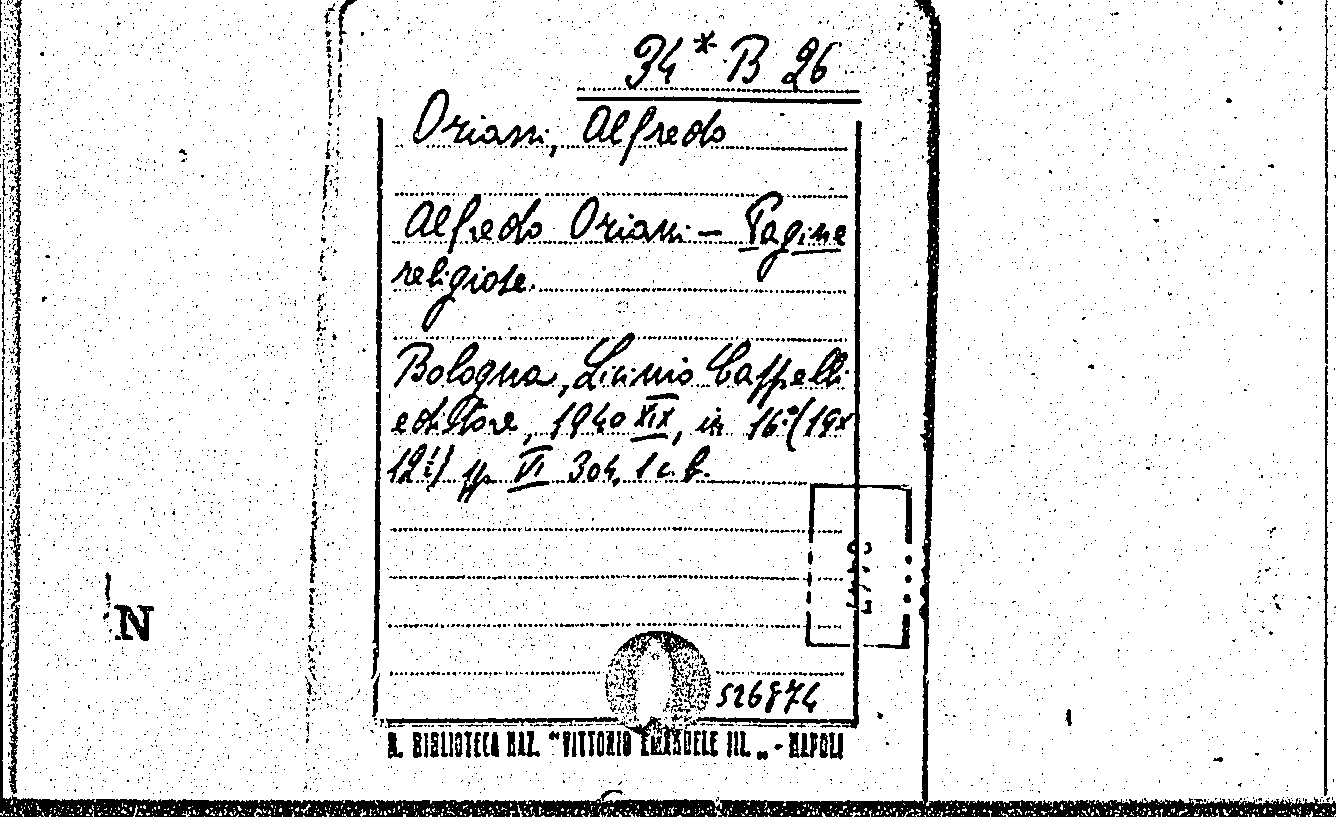 34* B 26
Oriani, Alfredo
Alfredo Oriani – Pagine
religiose.
Bologna, Licinio Cappelli
editore, 1940 XIX, in 16° (19x
12) pp VI 304, 1 c. b.
526874
R. BIBLIOTECA NAZ. "VITTORIO EMANUELE III. „ - NAPOLI
N